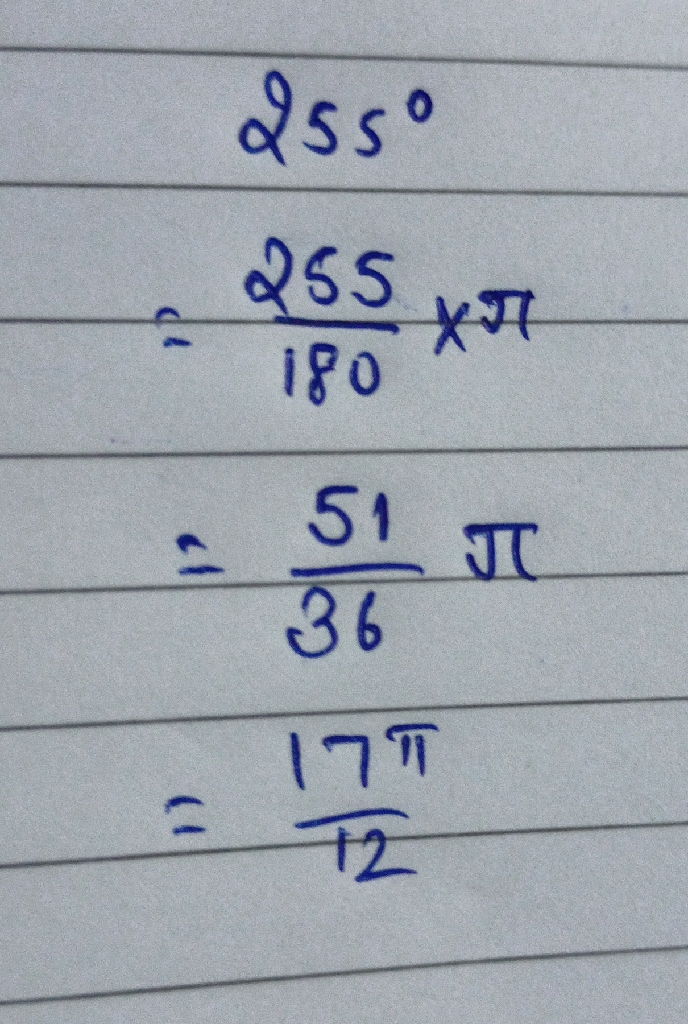 255°
= 255/180 × π
= 51/36 π
= 17π/12